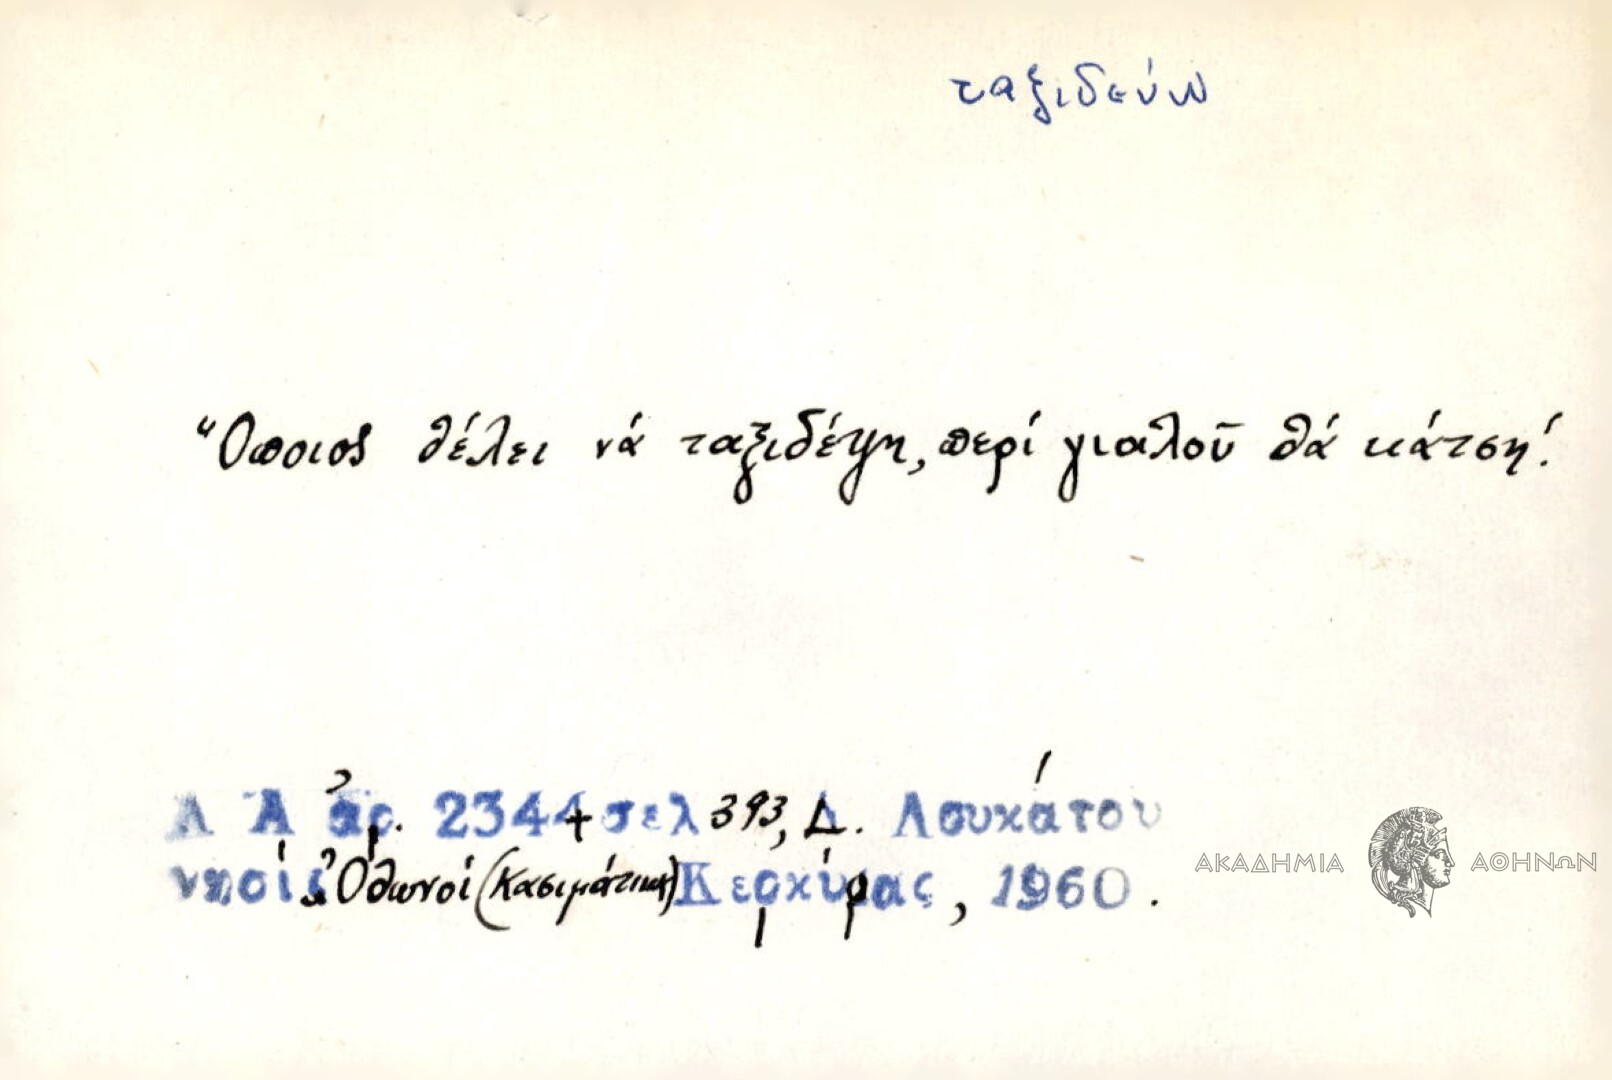 ταξιδεύω
Ὅποιος θέλει νά ταξιδέψη, περί γιαλοῦ θά κάτση!
Λ Α ἀρ. 2344 σελ 393, Δ. Λουκάτου
νησί Ὀθωνοί (Κασιμάτικα) Κερκύρας, 1960.
ΑΚΑΔΗΜΙΑ ΑΘΗΝΩΝ